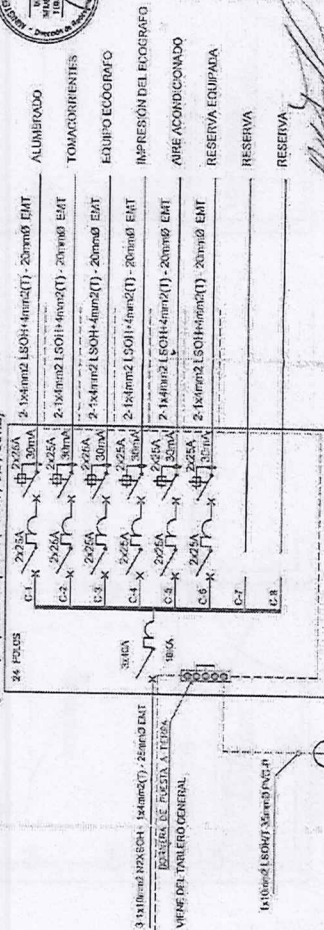 24 POLOS
C-1 2x25A 2x25A 30mA 2-1x4mm2 LSOH+4mm2(T) - 20mmØ EMT ALUMBRADO
C-2 2x25A 2x25A 30mA 2-1x4mm2 LSOH+4mm2(T) - 20mmØ EMT TOMACORRIENTES
C-3 2x25A 2x25A 30mA 2-1x4mm2 LSOH+4mm2(T) - 20mmØ EMT EQUIPO ECOGRAFO
C-4 2x25A 2x25A 30mA 2-1x4mm2 LSOH+4mm2(T) - 20mmØ EMT IMPRESIÓN DEL ECOGRAFO
C-5 2x25A 2x25A 30mA 2-1x4mm2 LSOH+4mm2(T) - 20mmØ EMT AIRE ACONDICIONADO
C-6 2x25A 2x25A 30mA 2-1x4mm2 LSOH+4mm2(T) - 20mmØ EMT RESERVA EQUIPADA
C-7 RESERVA
C-8 RESERVA
3x40A
10KA
3-1x10mm2 N2XSOH + 1x4mm2(T) - 25mmØ EMT
BORNERA DE PUESTA A TIERRA
VIENE DEL TABLERO GENERAL
1x10mm2 LSOH/T 35mmØ PVC-P